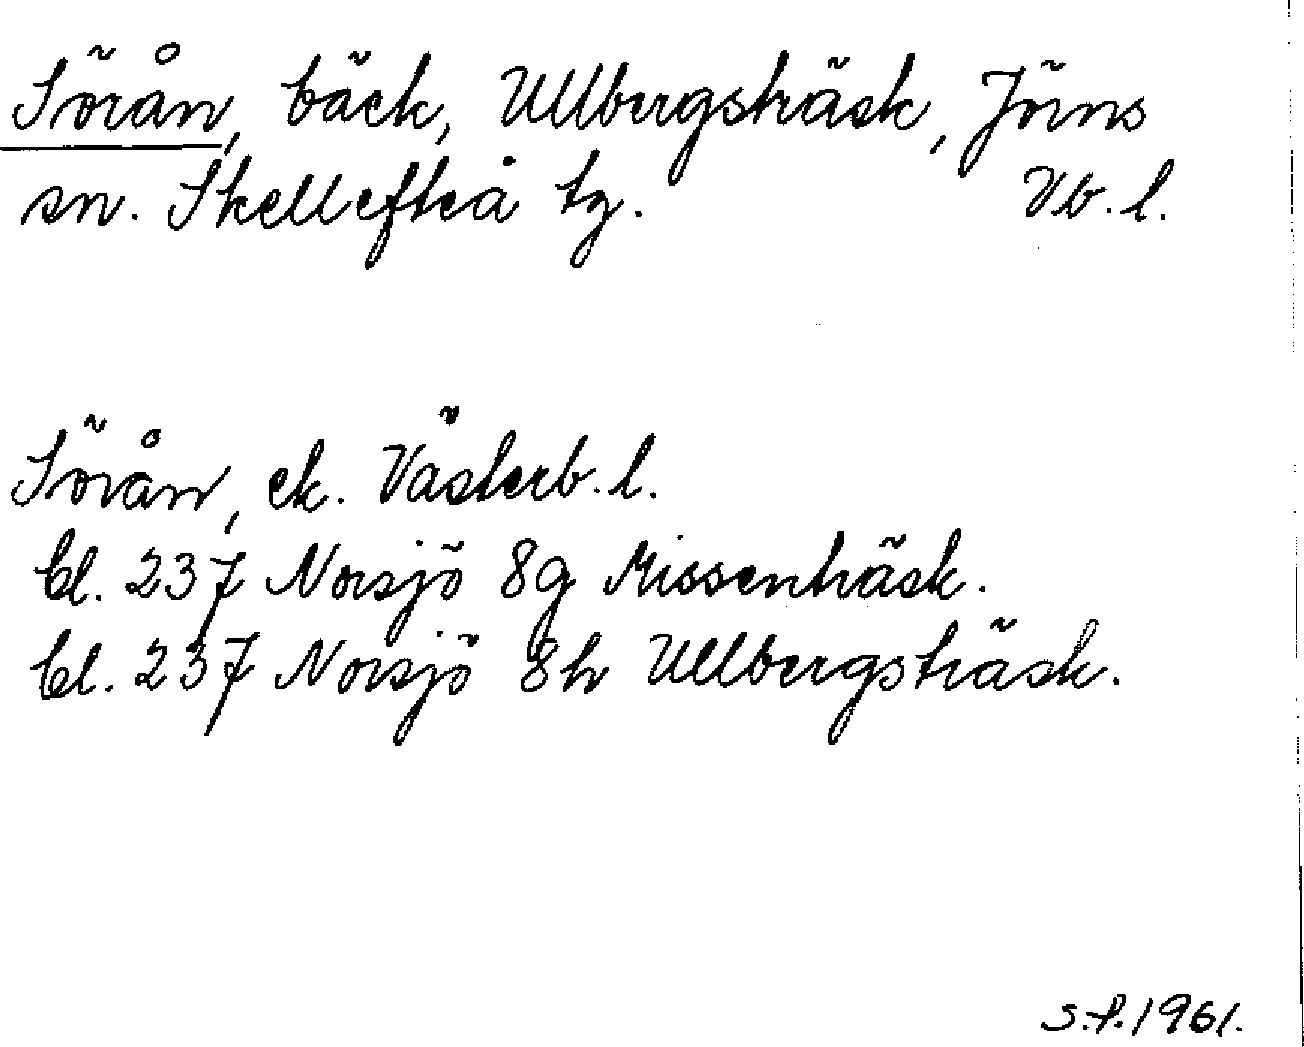 Sörån, bäck, Ullbergsträsk, Jörns
sn. Skellefteå tg. Vb. l.
Sörån, ek. Västerb. l.
bl. 237 Norsjö 8g Missenträsk.
bl. 237 Norsjö 8h Ullbergsträsk.
S.P. 1961.